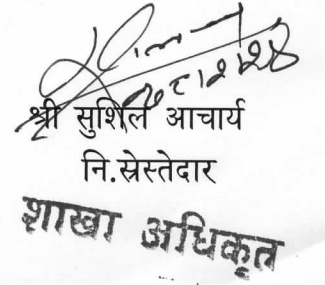 श्री सुशिल आचार्य
नि.स्रेस्तेदार
शाखा अधिकृत